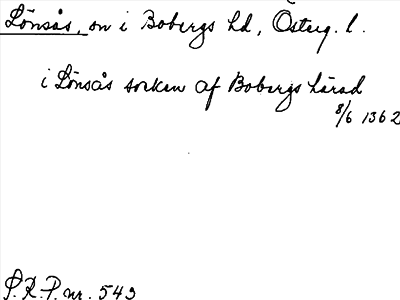 Lönsås, sn i Bobergs hd, Österg. l.
i Lönsås sorken af Bobergs härad
8/6 1362
S.R.P. nr. 543